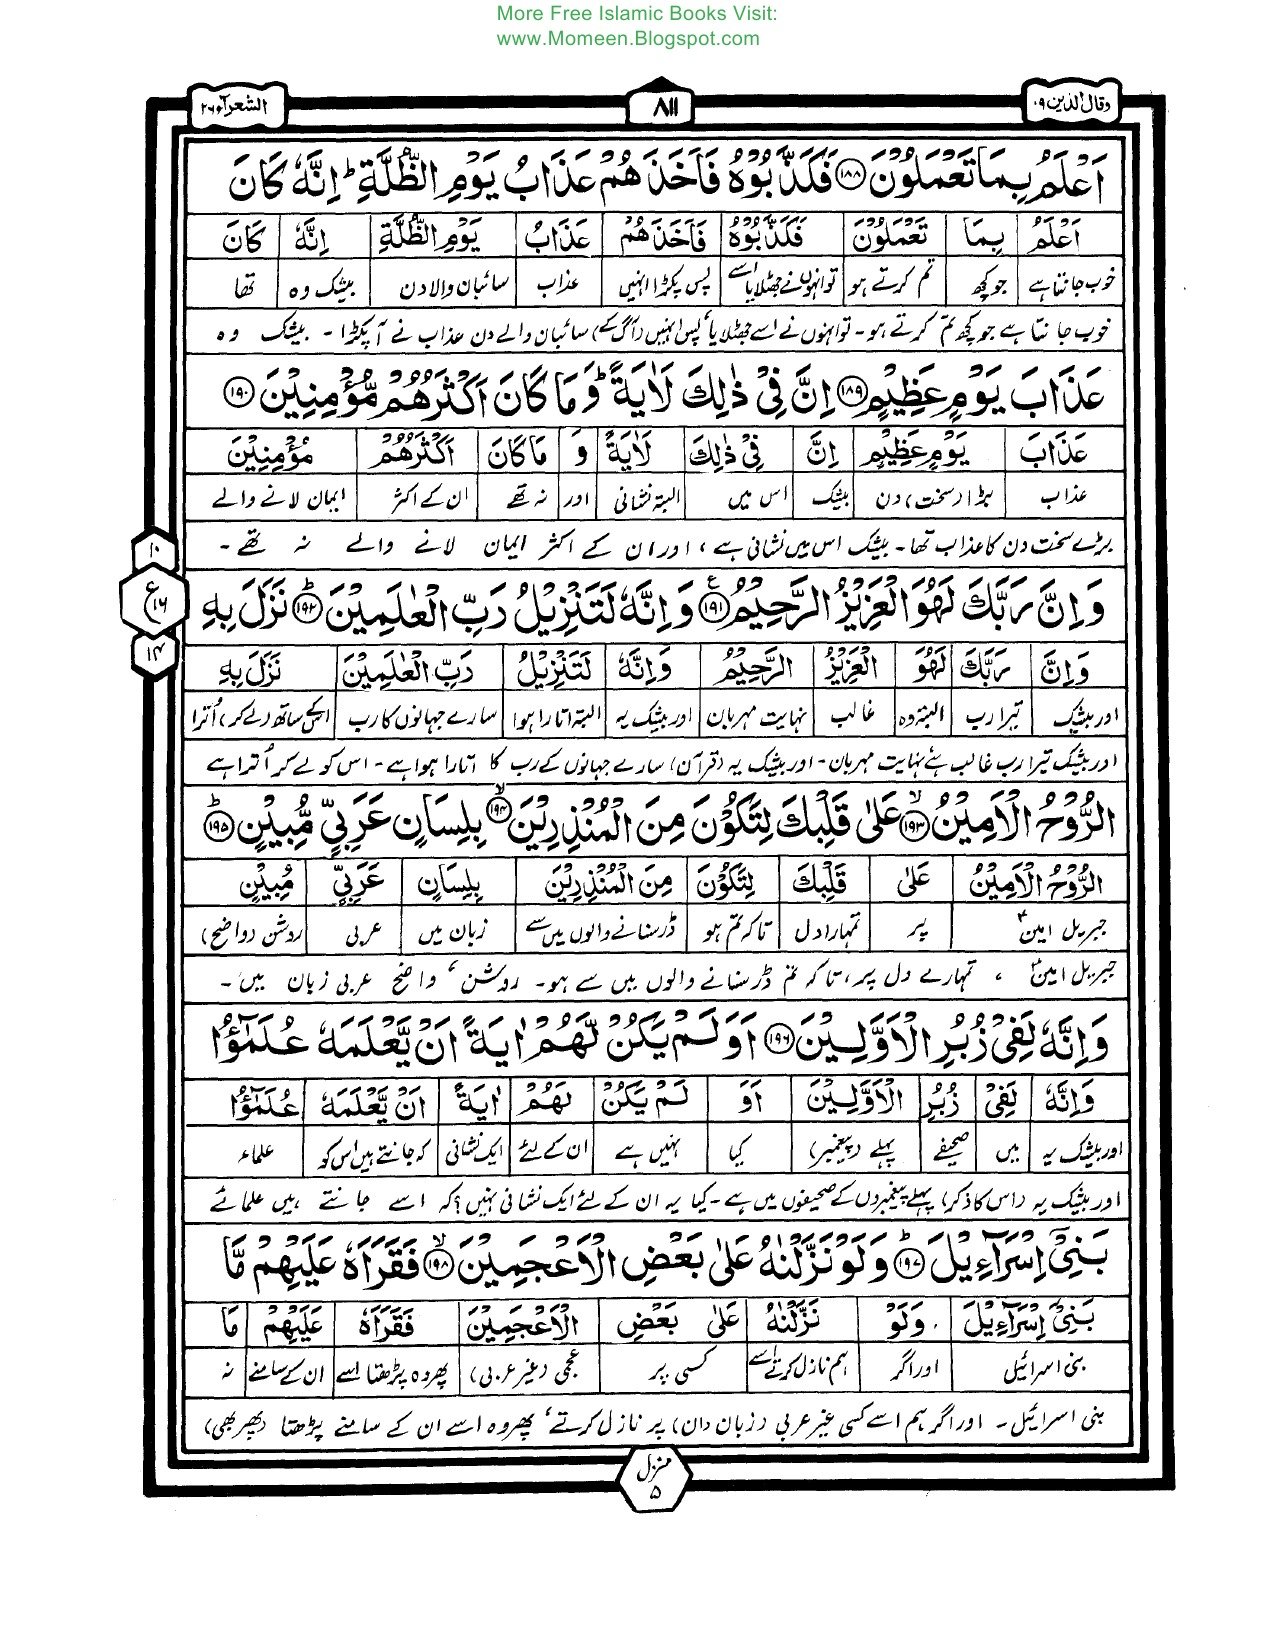 More Free Islamic Books Visit:
www.Momeen.Blogspot.com
وقال الذین ۱۹
۸۱۱
الشعرآء ۲۶
اَعْلَمُ بِمَا تَعْمَلُوْنَ ﴿۱۸۸﴾ فَكَذَّبُوْهُ فَاَخَذَهُمْ عَذَابُ يَوْمِ الظُّلَّةِ ؕ اِنَّهٗ كَانَ
اَعْلَمُ بِمَا تَعْمَلُوْنَ فَكَذَّبُوْهُ فَاَخَذَهُمْ عَذَابُ يَوْمِ الظُّلَّةِ اِنَّهٗ كَانَ
خوب جانتا ہے جو کچھ تم کرتے ہو تو انہوں نے جھٹلایا اسے پس پکڑا انہیں عذاب سائبان والا دن بیشک وہ تھا
خوب جانتا ہے جو کچھ تم کرتے ہو۔ تو انہوں نے اسے جھٹلایا، پس انہیں (آگ کے) سائبان والے دن عذاب نے آ پکڑا۔ بیشک وہ
عَذَابَ يَوْمٍ عَظِيْمٍ ﴿۱۸۹﴾ اِنَّ فِيْ ذٰلِكَ لَاٰيَةً ؕ وَ مَا كَانَ اَكْثَرُهُمْ مُّؤْمِنِيْنَ ﴿۱۹۰﴾
عَذَابَ يَوْمٍ عَظِيْمٍ اِنَّ فِيْ ذٰلِكَ لَاٰيَةً وَ مَا كَانَ اَكْثَرُهُمْ مُّؤْمِنِيْنَ
عذاب بڑا (سخت) دن بیشک اس میں البتہ نشانی اور نہ تھے ان کے اکثر ایمان لانے والے
بڑے سخت دن کا عذاب تھا۔ بیشک اس میں نشانی ہے، اور ان کے اکثر ایمان لانے والے نہ تھے۔
۱۰
ع ۱۶
۱۴
وَ اِنَّ رَبَّكَ لَهُوَ الْعَزِيْزُ الرَّحِيْمُ ﴿۱۹۱﴾ وَ اِنَّهٗ لَتَنْزِيْلُ رَبِّ الْعٰلَمِيْنَ ﴿۱۹۲﴾ نَزَلَ بِهِ
وَ اِنَّ رَبَّكَ لَهُوَ الْعَزِيْزُ الرَّحِيْمُ وَ اِنَّهٗ لَتَنْزِيْلُ رَبِّ الْعٰلَمِيْنَ نَزَلَ بِهِ
اور بیشک تیرا رب البتہ وہ غالب نہایت مہربان اور بیشک یہ البتہ اتارا ہوا سارے جہانوں کا رب اسکے ساتھ (لے کر) اُترا
اور بیشک تیرا رب غالب ہے نہایت مہربان۔ اور بیشک یہ (قرآن) سارے جہانوں کے رب کا اتارا ہوا ہے۔ اس کو لے کر اُترا ہے
الرُّوْحُ الْاَمِيْنُ ﴿۱۹۳﴾ عَلٰى قَلْبِكَ لِتَكُوْنَ مِنَ الْمُنْذِرِيْنَ ﴿۱۹۴﴾ بِلِسَانٍ عَرَبِيٍّ مُّبِيْنٍ ﴿۱۹۵﴾
الرُّوْحُ الْاَمِيْنُ عَلٰى قَلْبِكَ لِتَكُوْنَ مِنَ الْمُنْذِرِيْنَ بِلِسَانٍ عَرَبِيٍّ مُّبِيْنٍ
جبریل امینؑ پر تمہارا دل تاکہ تم ہو ڈر سنانے والوں میں سے زبان میں عربی روشن (واضح)
جبریل امینؑ، تمہارے دل پر، تاکہ تم ڈر سنانے والوں میں سے ہو۔ روشن، واضح عربی زبان میں۔
وَ اِنَّهٗ لَفِيْ زُبُرِ الْاَوَّلِيْنَ ﴿۱۹۶﴾ اَوَ لَمْ يَكُنْ لَّهُمْ اٰيَةً اَنْ يَّعْلَمَهٗ عُلَمٰٓؤُا
وَ اِنَّهٗ لَفِيْ زُبُرِ الْاَوَّلِيْنَ اَوَ لَمْ يَكُنْ لَّهُمْ اٰيَةً اَنْ يَّعْلَمَهٗ عُلَمٰٓؤُا
اور بیشک یہ میں صحیفے پہلے (پیغمبر) کیا نہیں ہے ان کے لئے ایک نشانی کہ جانتے ہیں اس کو علماء
اور بیشک یہ (اس کا ذکر) پہلے پیغمبروں کے صحیفوں میں ہے۔ کیا یہ ان کے لئے ایک نشانی نہیں؟ کہ اسے جانتے ہیں علمائے
بَنِيْٓ اِسْرَآءِيْلَ ﴿۱۹۷﴾ وَ لَوْ نَزَّلْنٰهُ عَلٰى بَعْضِ الْاَعْجَمِيْنَ ﴿۱۹۸﴾ فَقَرَاَهٗ عَلَيْهِمْ مَّا
بَنِيْٓ اِسْرَآءِيْلَ وَلَوْ نَزَّلْنٰهُ عَلٰى بَعْضِ الْاَعْجَمِيْنَ فَقَرَاَهٗ عَلَيْهِمْ مَّا
بنی اسرائیل اور اگر ہم نازل کرتے اسے کسی پر عجمی (غیر عربی) پھر وہ پڑھتا اسے ان کے سامنے نہ
بنی اسرائیل۔ اور اگر ہم اسے کسی غیر عربی (زبان دان) پر نازل کرتے، پھر وہ اسے ان کے سامنے پڑھتا (پھر بھی)
منزل ۵